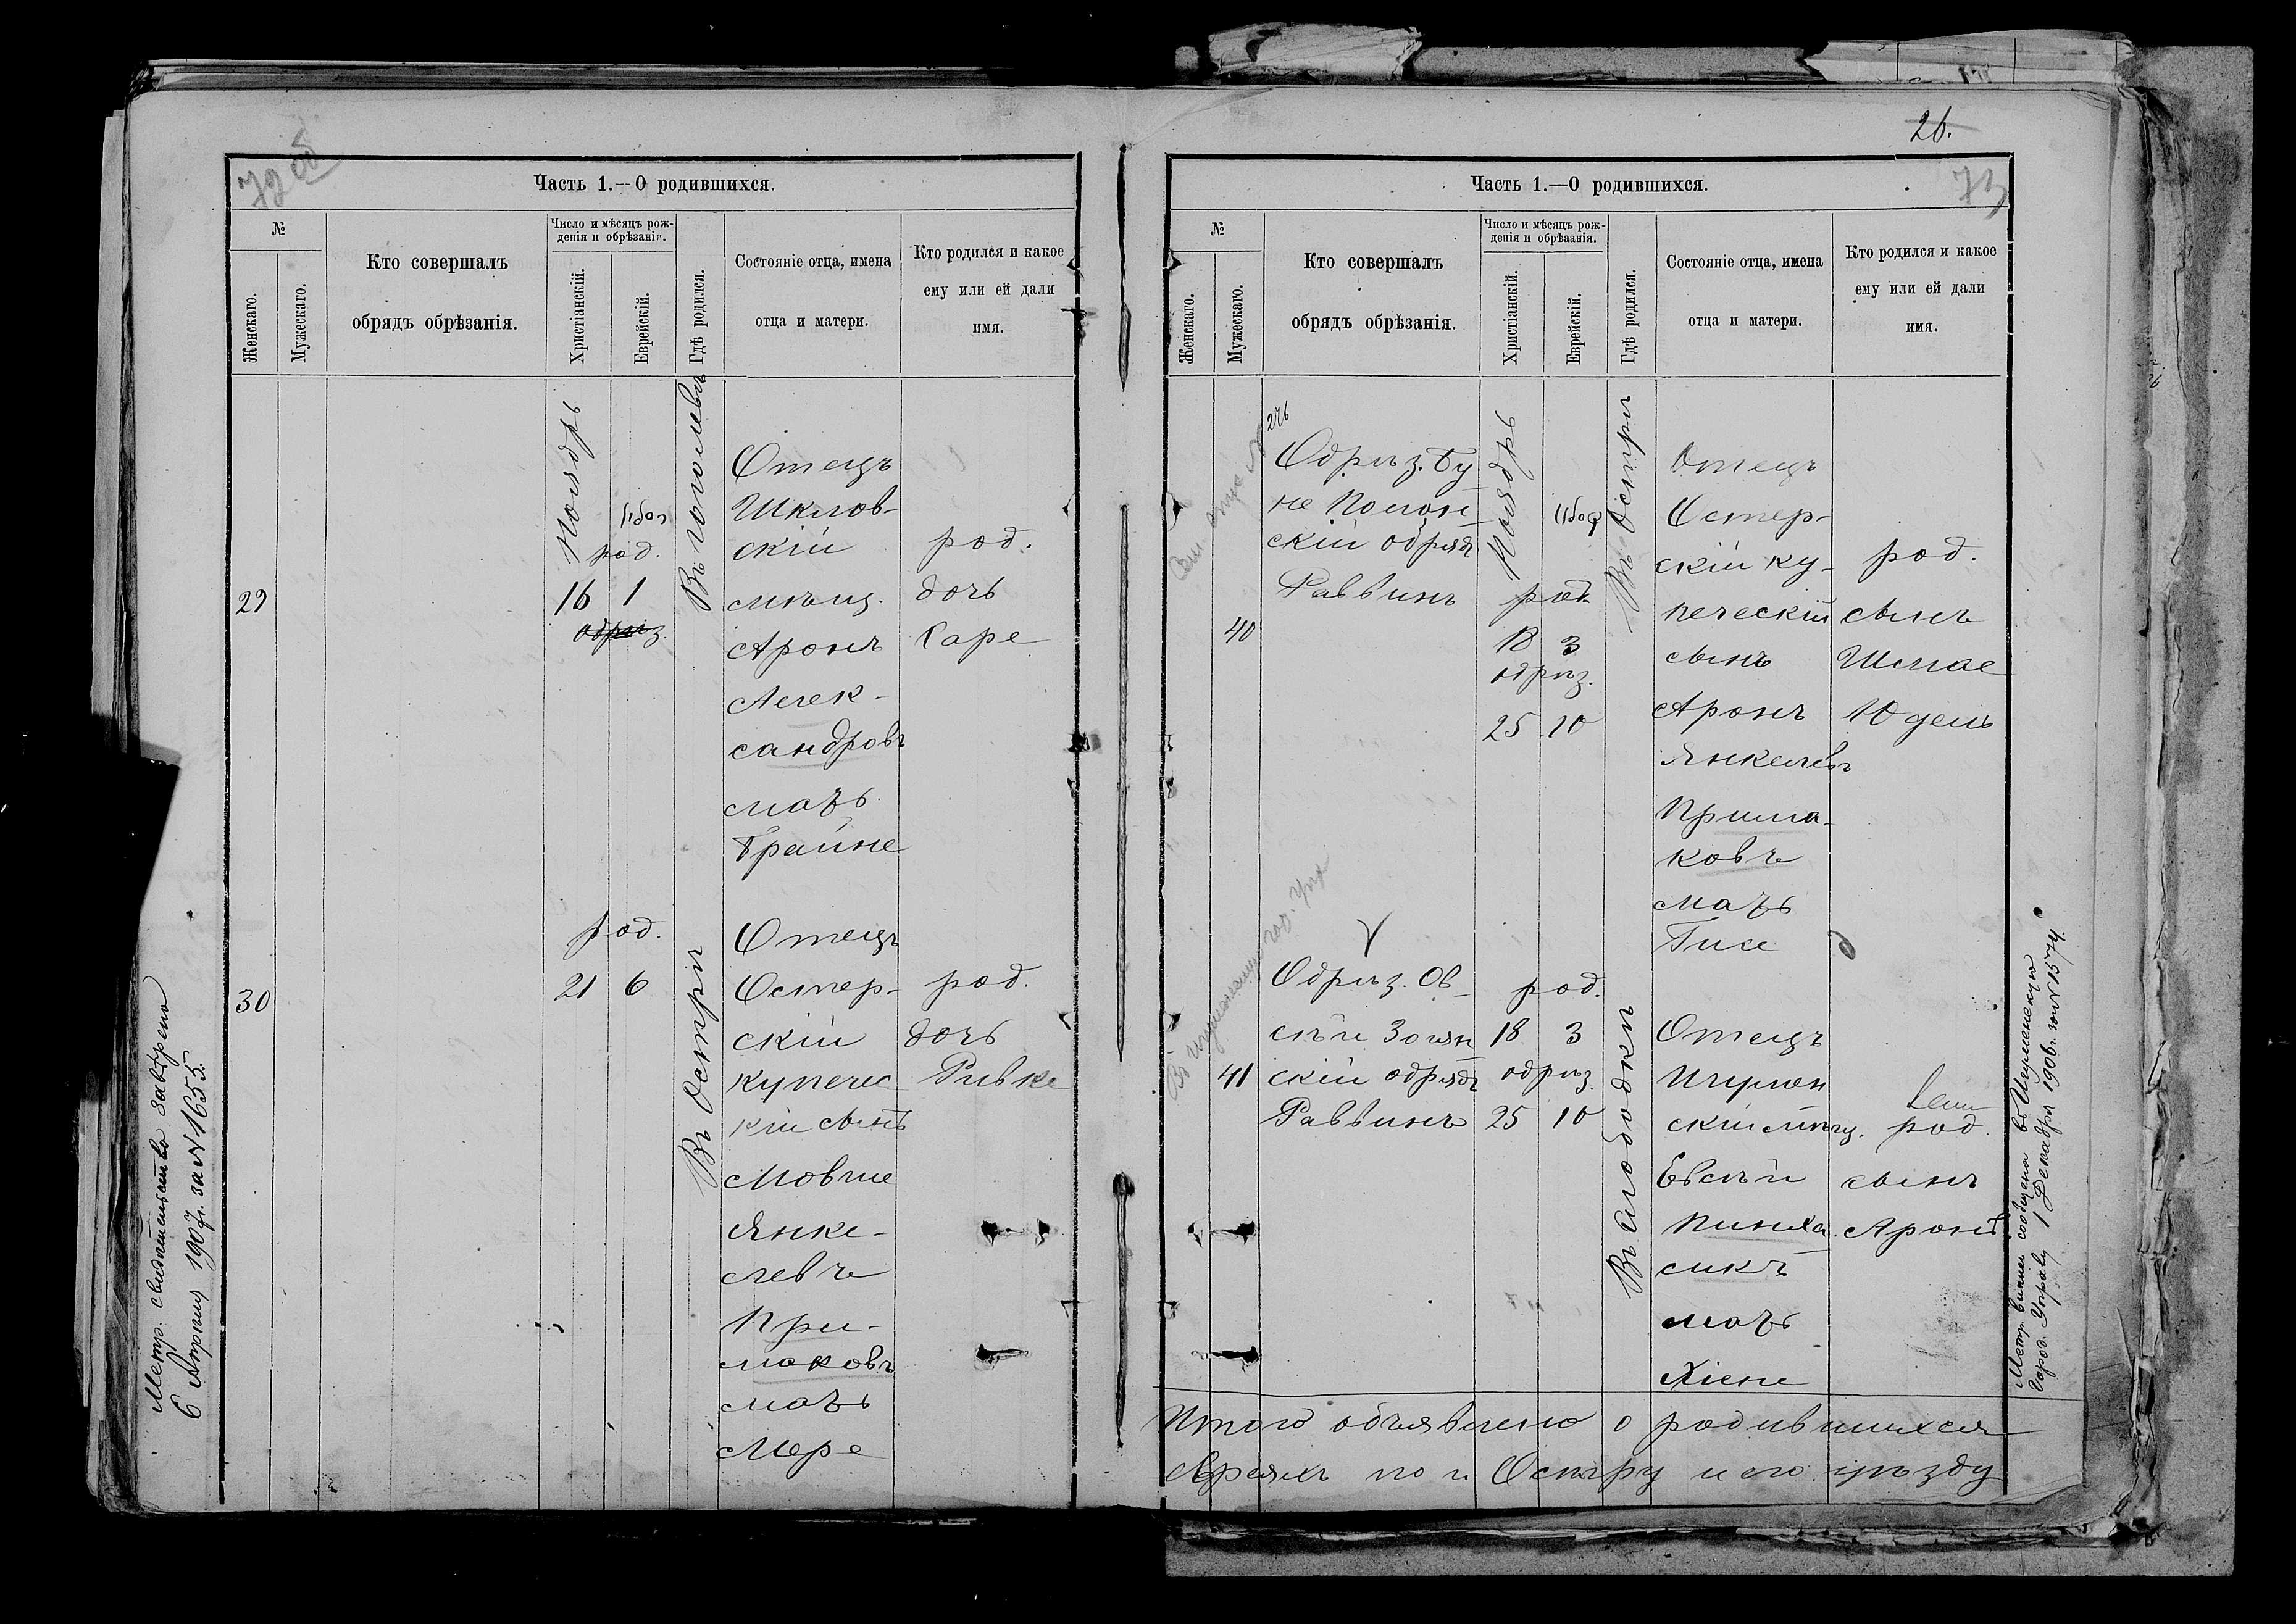 72 об
Часть 1.—О родившихся.
№
Женскаго.
Мужескаго.
Кто совершалъ
обрядъ обрѣзанія.
Число и мѣсяцъ рож-
денія и обрѣзанія.
Христіанскій.
Еврейскій.
Гдѣ родился.
Состояніе отца, имена
отца и матери.
Кто родился и какое
ему или ей дали
имя.
29
Ноябрь
род.
16 1
обрѣз.
Отецъ
Шклов-
скій
мѣщ.
Аронъ
Алек-
сандровъ
мать
Брайне
род.
дочь
Саре
30
род.
21 6
Въ Острѣ
Отецъ
Остер-
скій
купечес
кій сынъ
Мовше
Янке-
левъ
При-
маковъ
мать
Мере
род.
дочь
Ривке
Метр. свидѣтельство завѣрено
6 Апрѣля 1907 г. за № 1655.
26.
73
Часть 1.—О родившихся.
№
Женскаго.
Мужескаго.
Кто совершалъ
обрядъ обрѣзанія.
Число и мѣсяцъ рож-
денія и обрѣзанія.
Христіанскій.
Еврейскій.
Гдѣ родился.
Состояніе отца, имена
отца и матери.
Кто родился и какое
ему или ей дали
имя.
40
276
Обрѣз. Бу
не Полон
скій обрядъ
Раввинъ
Ноябрь
род.
18 3
обрѣз.
25 10
Въ Острѣ
Отецъ
Остер-
скій ку-
печескій
сынъ
Аронъ
Янкелевъ
Прима-
ковъ
мать
Гисе
род.
сынъ
Шлиое
41
Обрѣз. Ов
сѣй
скій обрядъ
Раввинъ
род.
18 3
обрѣз.
25 10
Въ Слободкѣ
Отецъ
Игумен
скій мѣщ.
Евсѣй
Пинха
сикъ
мать
Хіене
род.
сынъ
Аронъ
Метр. выпись сообщена въ Игуменскую
Город. Управу 1 Декабря 1906 г. за № 1574.
Итого объявлено о родившихся
Евреяхъ по г. Остру и его уѣзду